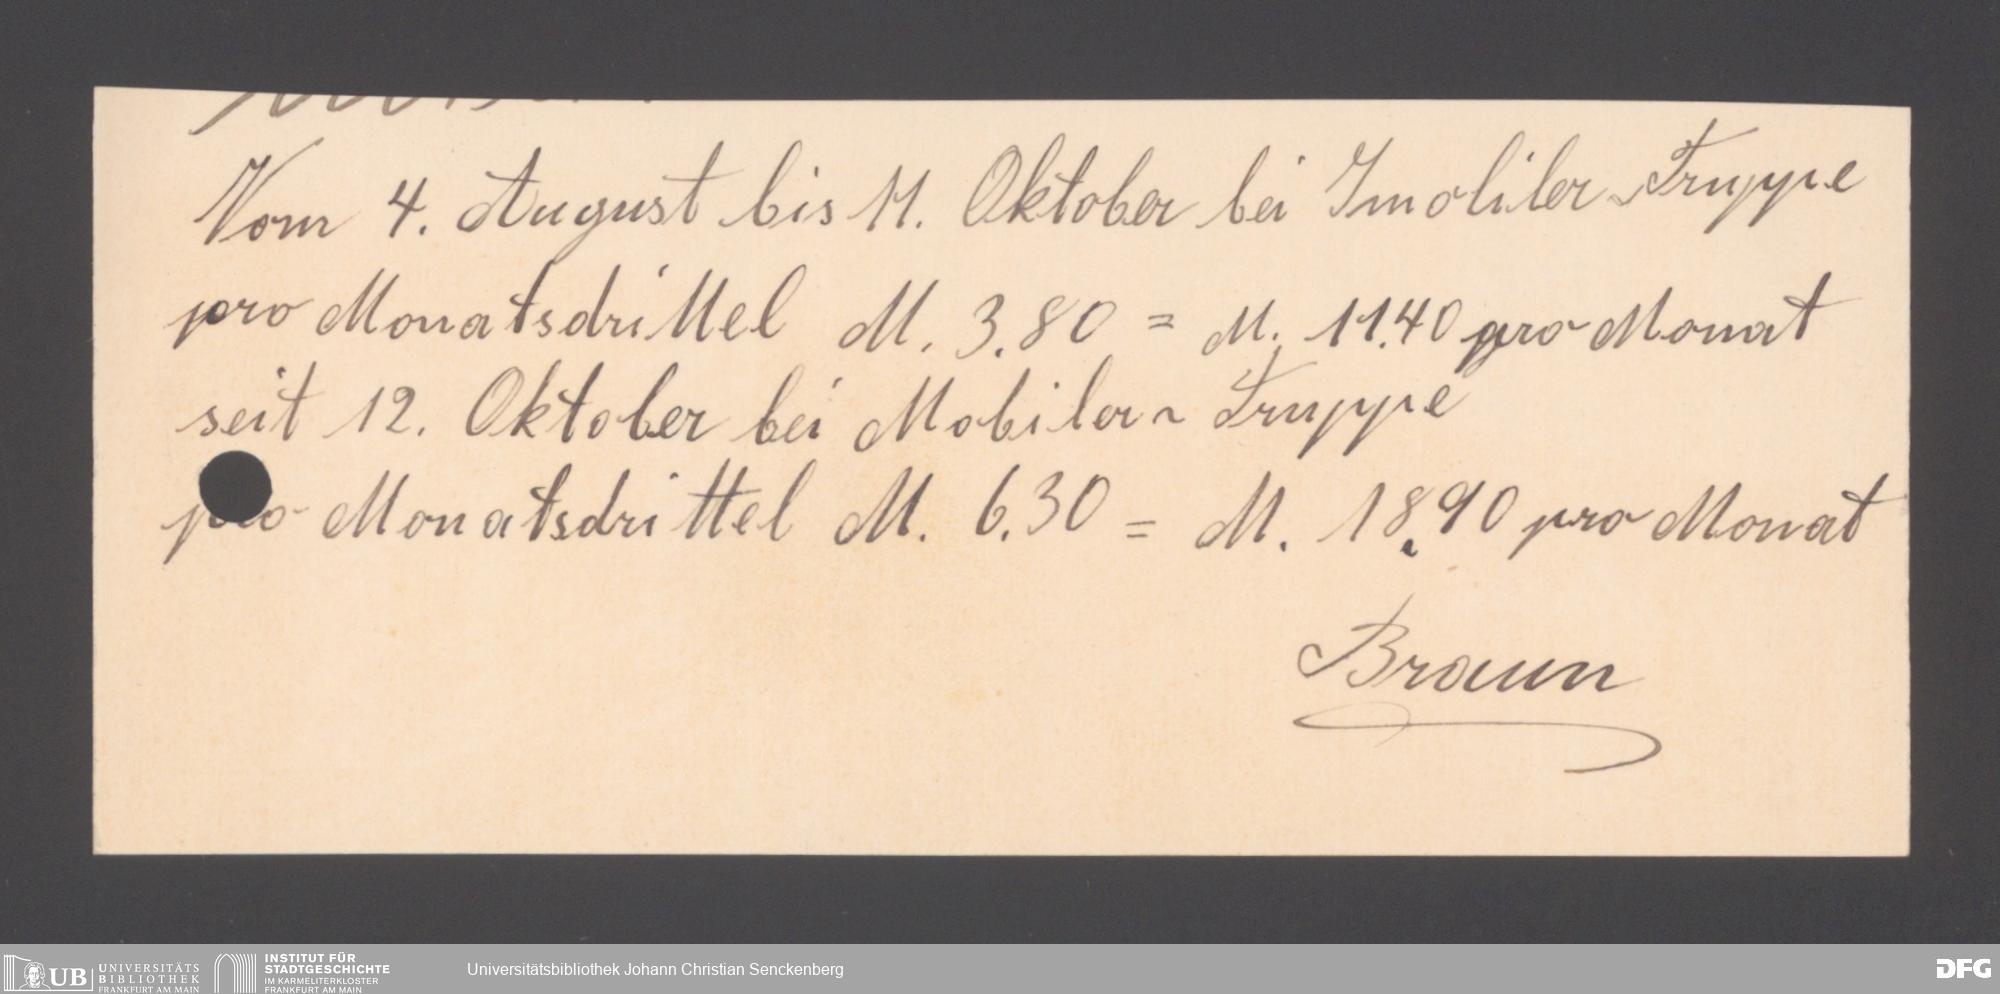 Vom 4. August bis 11. Oktober bei Imobiler Truppe
pro Monatsdrittel M. 3.80 = M. 11.40 pro Monat
seit 12. Oktober bei Mobiler - Truppe
pro Monatsdrittel M. 6.30 = M. 18.90 pro Monat
Braun
UB UNIVERSITÄTS
BIBLIOTHEK
FRANKFURT AM MAIN
INSTITUT FÜR
STADTGESCHICHTE
IM KARMELITERKLOSTER
FRANKFURT AM MAIN
Universitätsbibliothek Johann Christian Senckenberg
DFG